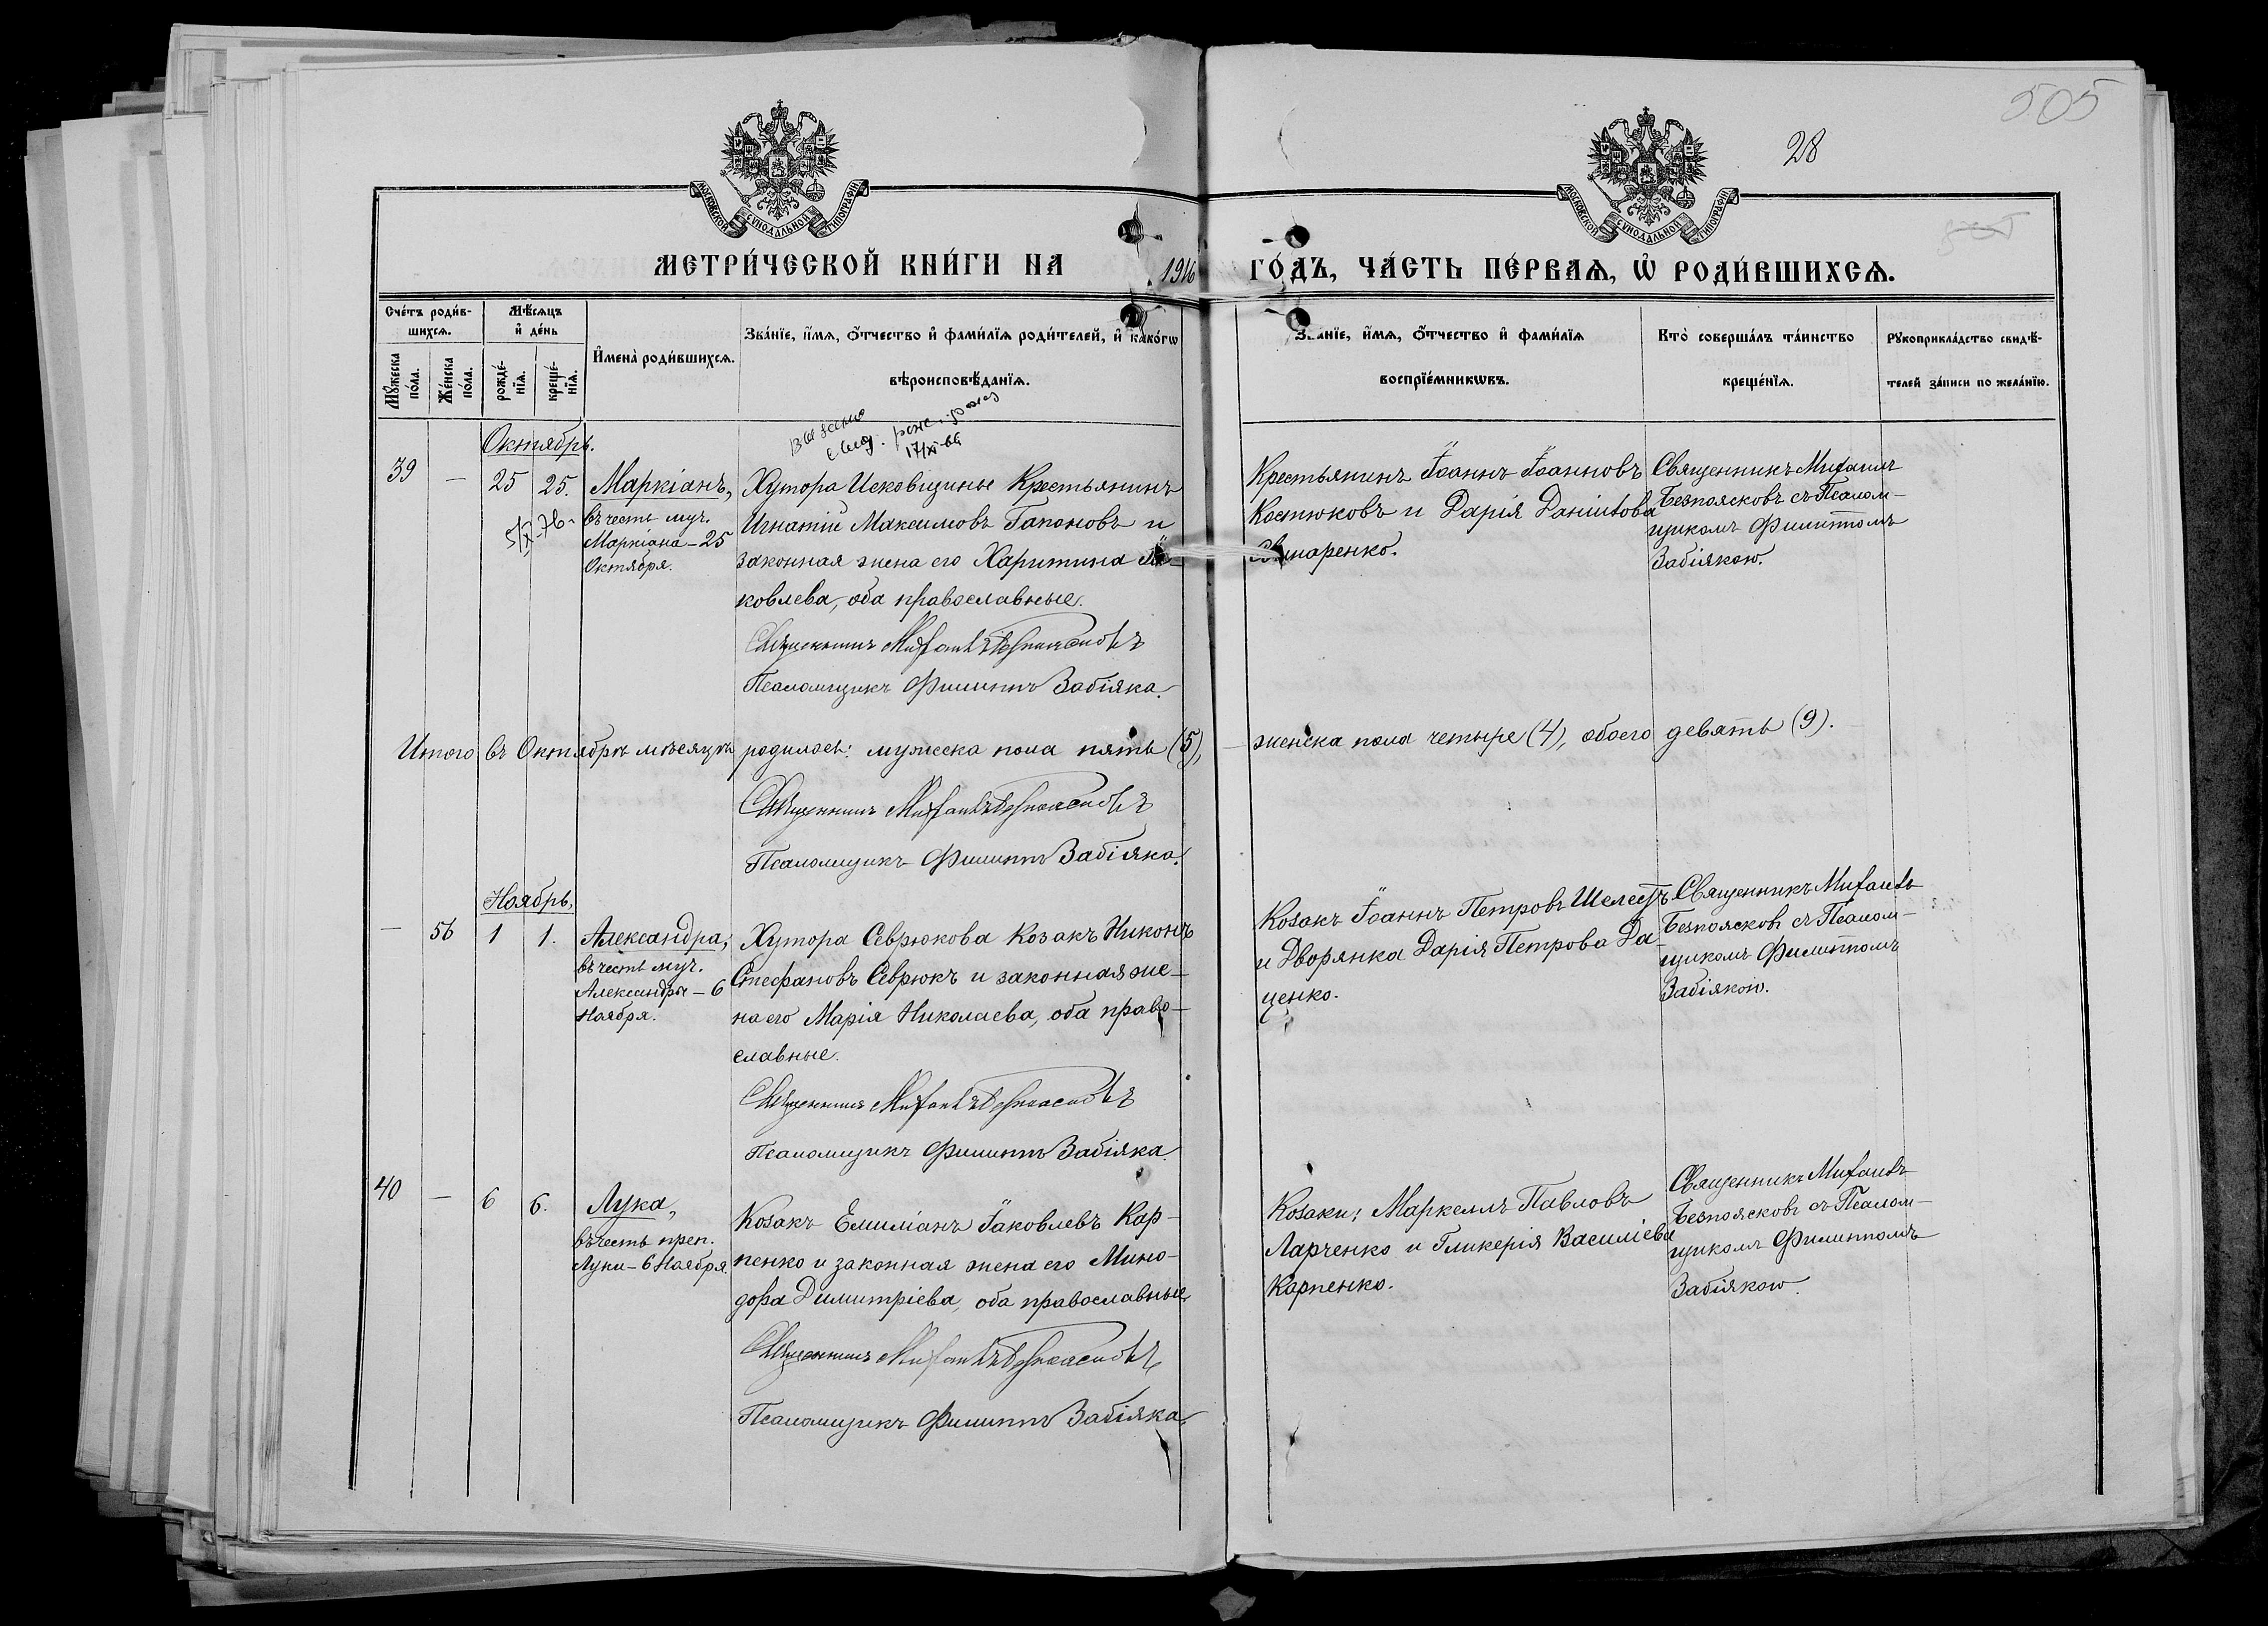 505
28
МОСКОВСКОЙ СѴНОДАЛЬНОЙ ТИПОГРАФІИ
МОСКОВСКОЙ СѴНОДАЛЬНОЙ ТИПОГРАФІИ
МЕТРИ́ЧЕСКОЙ КНИ́ГИ НА 1916 ГО́ДЪ, ЧА́СТЬ ПЕ́РВАЯ, Ѡ҆ РОДИ́ВШИХСЯ.
Сче́тъ роди́в-
шихся.
Му́жеска по́ла.
Же́нска по́ла.
Мѣ́сяцъ
и҆ де́нь
рожде́-
нїя.
креще́-
нїя.
И҆мена̀ роди́вшихся.
Зва́нїе, и҆́мя, о҆́тчество и҆ фами́лїя роди́телей, и҆ како́гѡ
вѣроисповѣ́данїя.
Зва́нїе, и҆́мя, о҆́тчество и҆ фами́лїя
воспрїе́мникѡвъ.
Кто̀ соверша́лъ та́инство
креще́нїя.
Рукоприкла́дство свидѣ́-
телей за́писи по жела́нїю.
Октябрь.
39 — 25 25. Маркіанъ,
въ честь муч.
Маркіана – 25
Октября.
17/XI-66
Хутора Исковщины Крестьянинъ
Игнатій Максимовъ Гапоновъ и
законная жена его Харитина Іа-
ковлева, оба православные.
Священникъ Михаилъ Безпоясковъ
Псаломщикъ Филиппъ Забіяка.
Крестьянинъ Іоаннъ Іоанновъ
Костюковъ и Дарія Даніилова
Священникъ Михаилъ
Безпоясковъ съ Псалом-
щикомъ Филиппомъ
Забіякою.
Итого въ Октябрѣ мѣсяцѣ родилось: мужеска пола пять (5), женска пола четыре (4), обоего девять (9).
Священникъ Михаилъ Безпоясковъ
Псаломщикъ Филиппъ Забіяка.
Ноябрь,
— 56 1 1. Александра,
въ честь муч.
Александры – 6
Ноября.
Хутора Севрюкова Козакъ Никонъ
Стефановъ Севрюкъ и законная же-
на его Марія Николаева, оба право-
славные.
Священникъ Михаилъ Безпоясковъ
Псаломщикъ Филиппъ Забіяка.
Козакъ Іоаннъ Петровъ Шелестъ
и Дворянка Дарія Петрова Да-
ценко.
Священникъ Михаилъ
Безпоясковъ съ Псалом-
щикомъ Филиппомъ
Забіякою.
40 — 6 6. Лука,
въ честь преп.
Луки – 6 Ноября.
Козакъ Емиліанъ Іаковлевъ Кар-
пенко и законная жена его Мино-
дора Димитріева, оба православные.
Священникъ Михаилъ Безпоясковъ
Псаломщикъ Филиппъ Забіяка.
Козаки: Маркеллъ Павловъ
Ларченко и Гликерія Василіева
Карпенко.
Священникъ Михаилъ
Безпоясковъ съ Псалом-
щикомъ Филиппомъ
Забіякою.